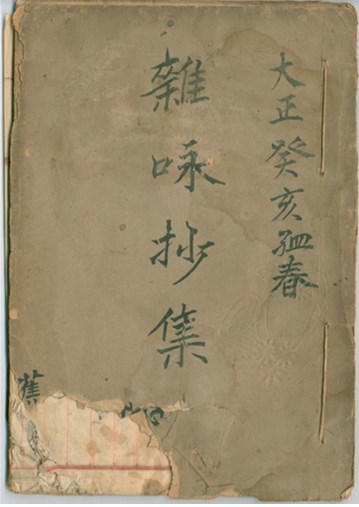 大正癸亥孟春
雜咏抄集
蕉